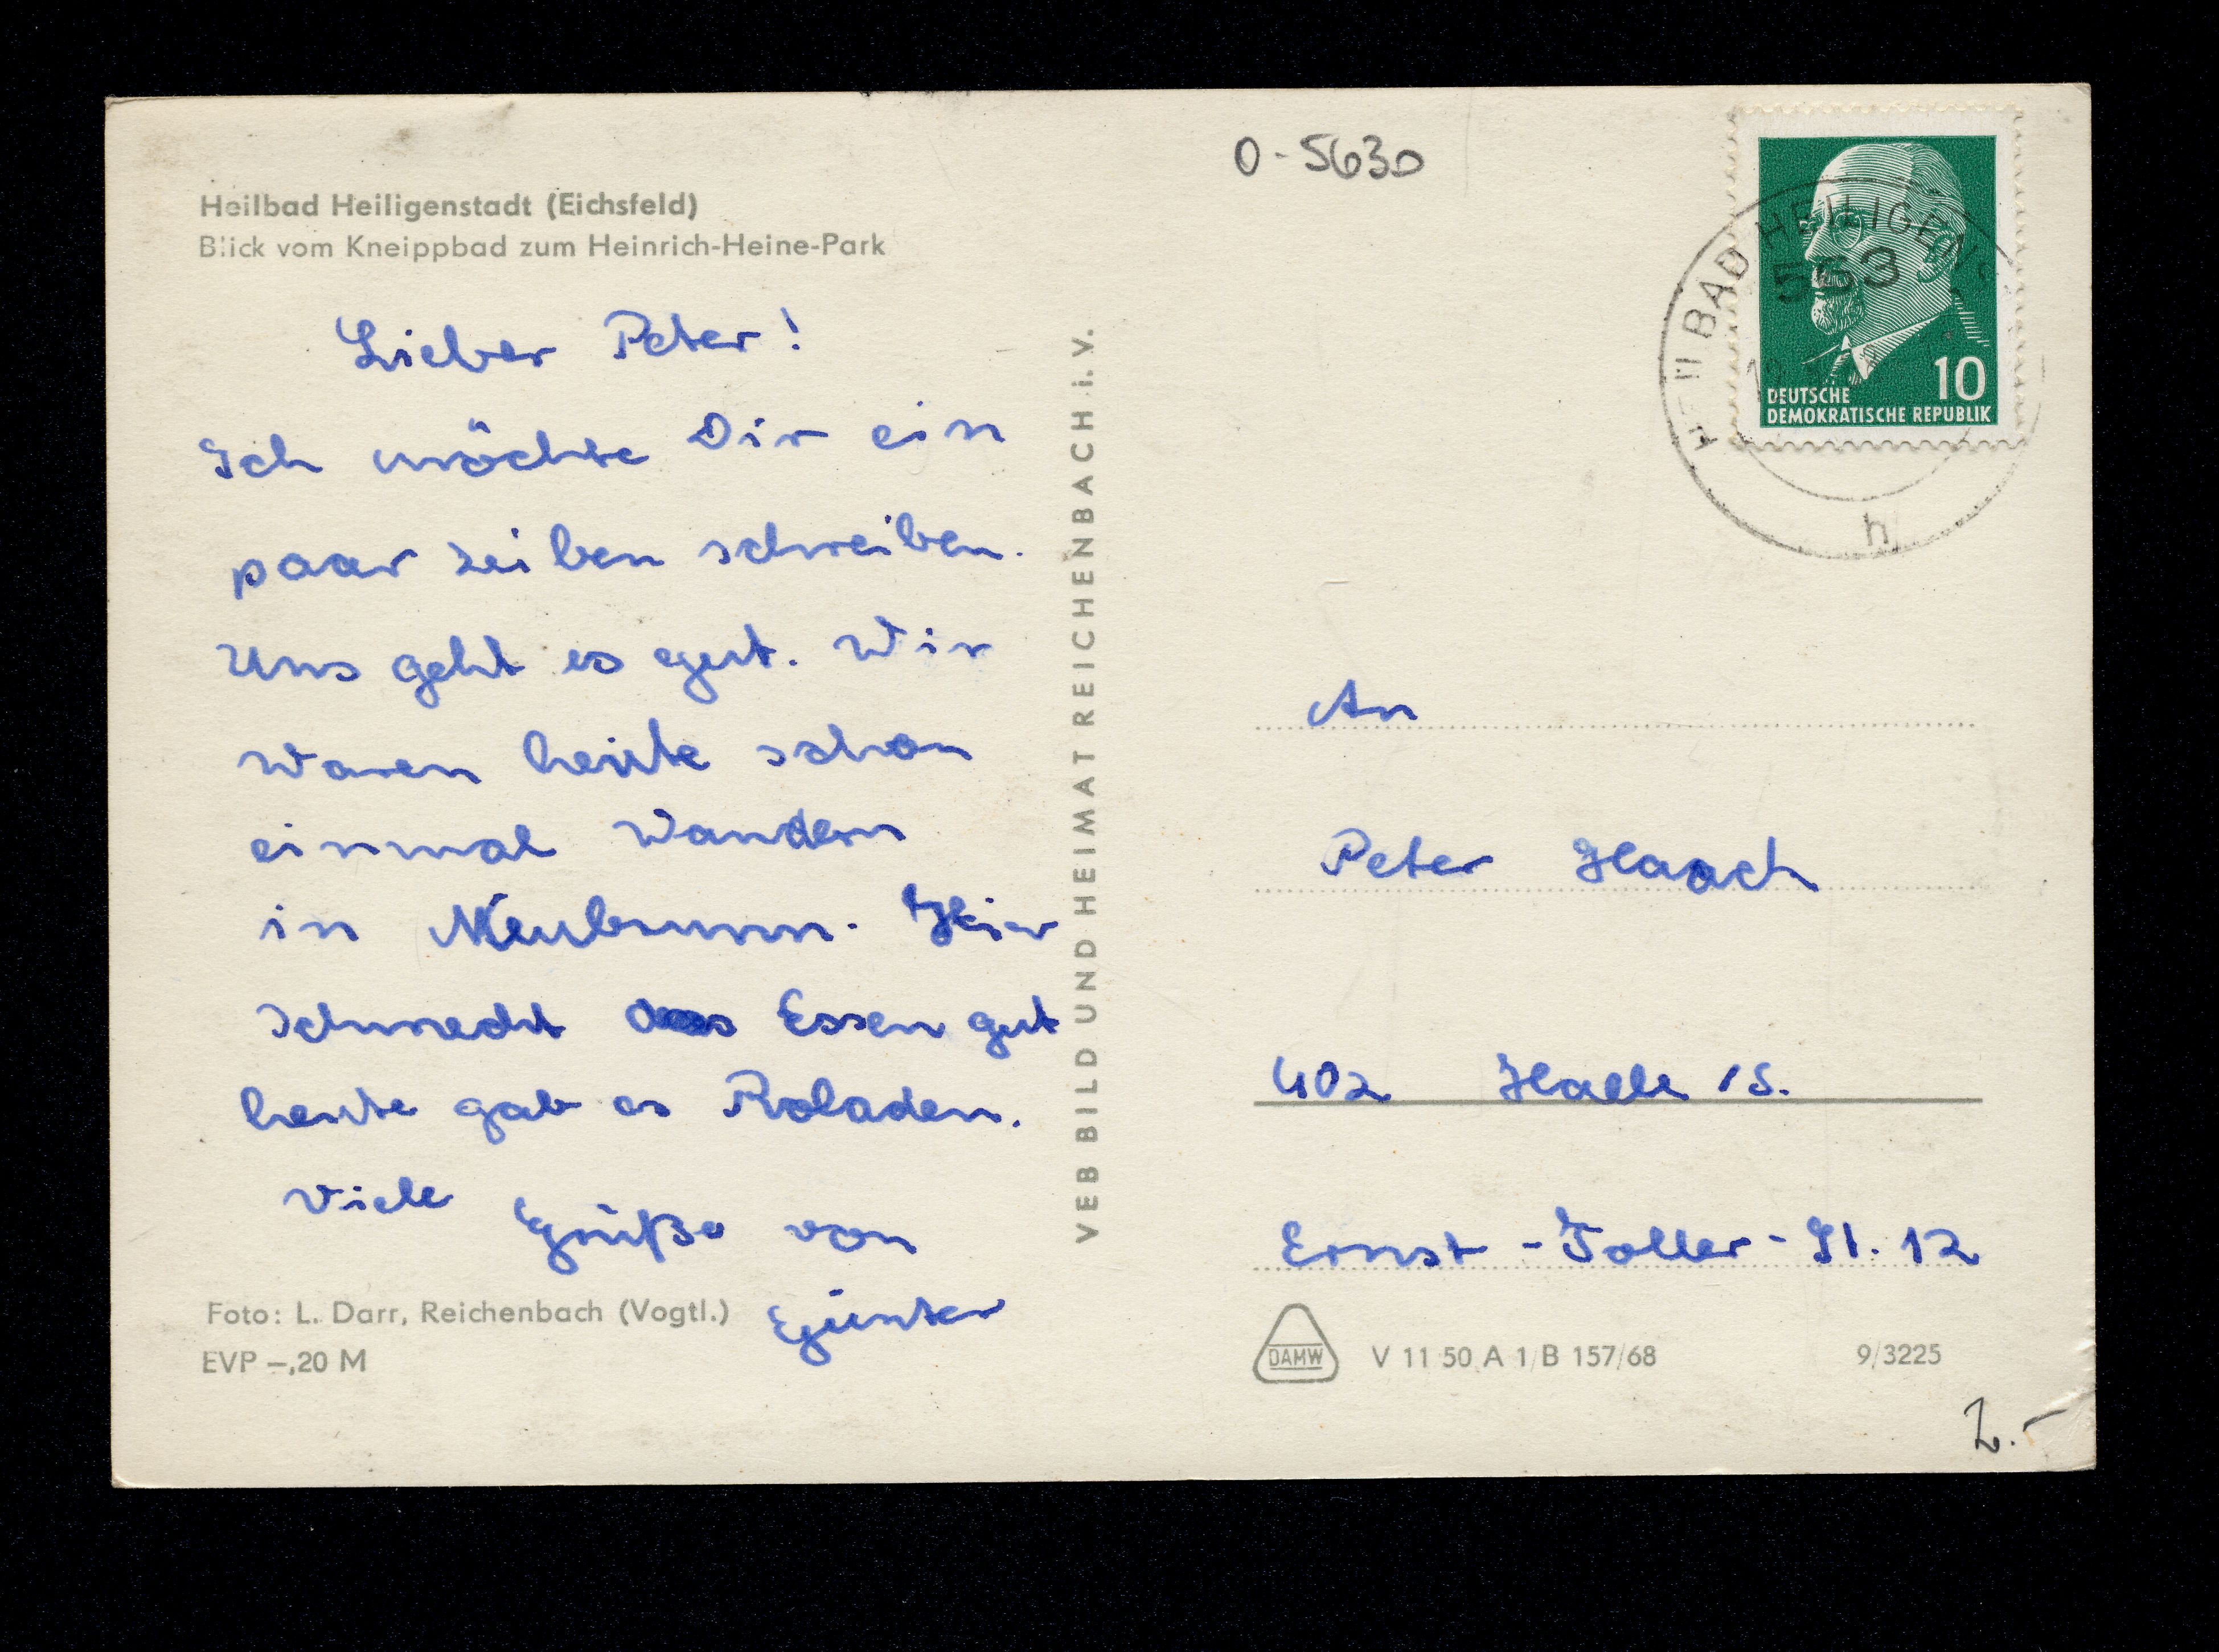 Heilbad Heiligenstadt (Eichsfeld)
Blick vom Kneippbad zum Heinrich-Heine-Park
Lieber Peter!
Ich möchte Dir ein
paar Zeilen schreiben.
Uns geht es gut. Wir
waren heute schon
einmal Wandern
in Neubrunn. Hier
schmeckt das Essen gut
heute gab es Roladen.
Viele Grüße von
Günter
Foto: L. Darr, Reichenbach (Vogtl.)
EVP –,20 M
VEB BILD UND HEIMAT REICHENBACH i. V.
0-5630
HEILBAD HEILIGEN
563
h
10
DEUTSCHE
DEMOKRATISCHE REPUBLIK
An
Peter Haach
402 Halle /S.
Ernst-Toller-St. 12
DAMW
V 11 50 A 1/B 157/68
9/3225
2.-